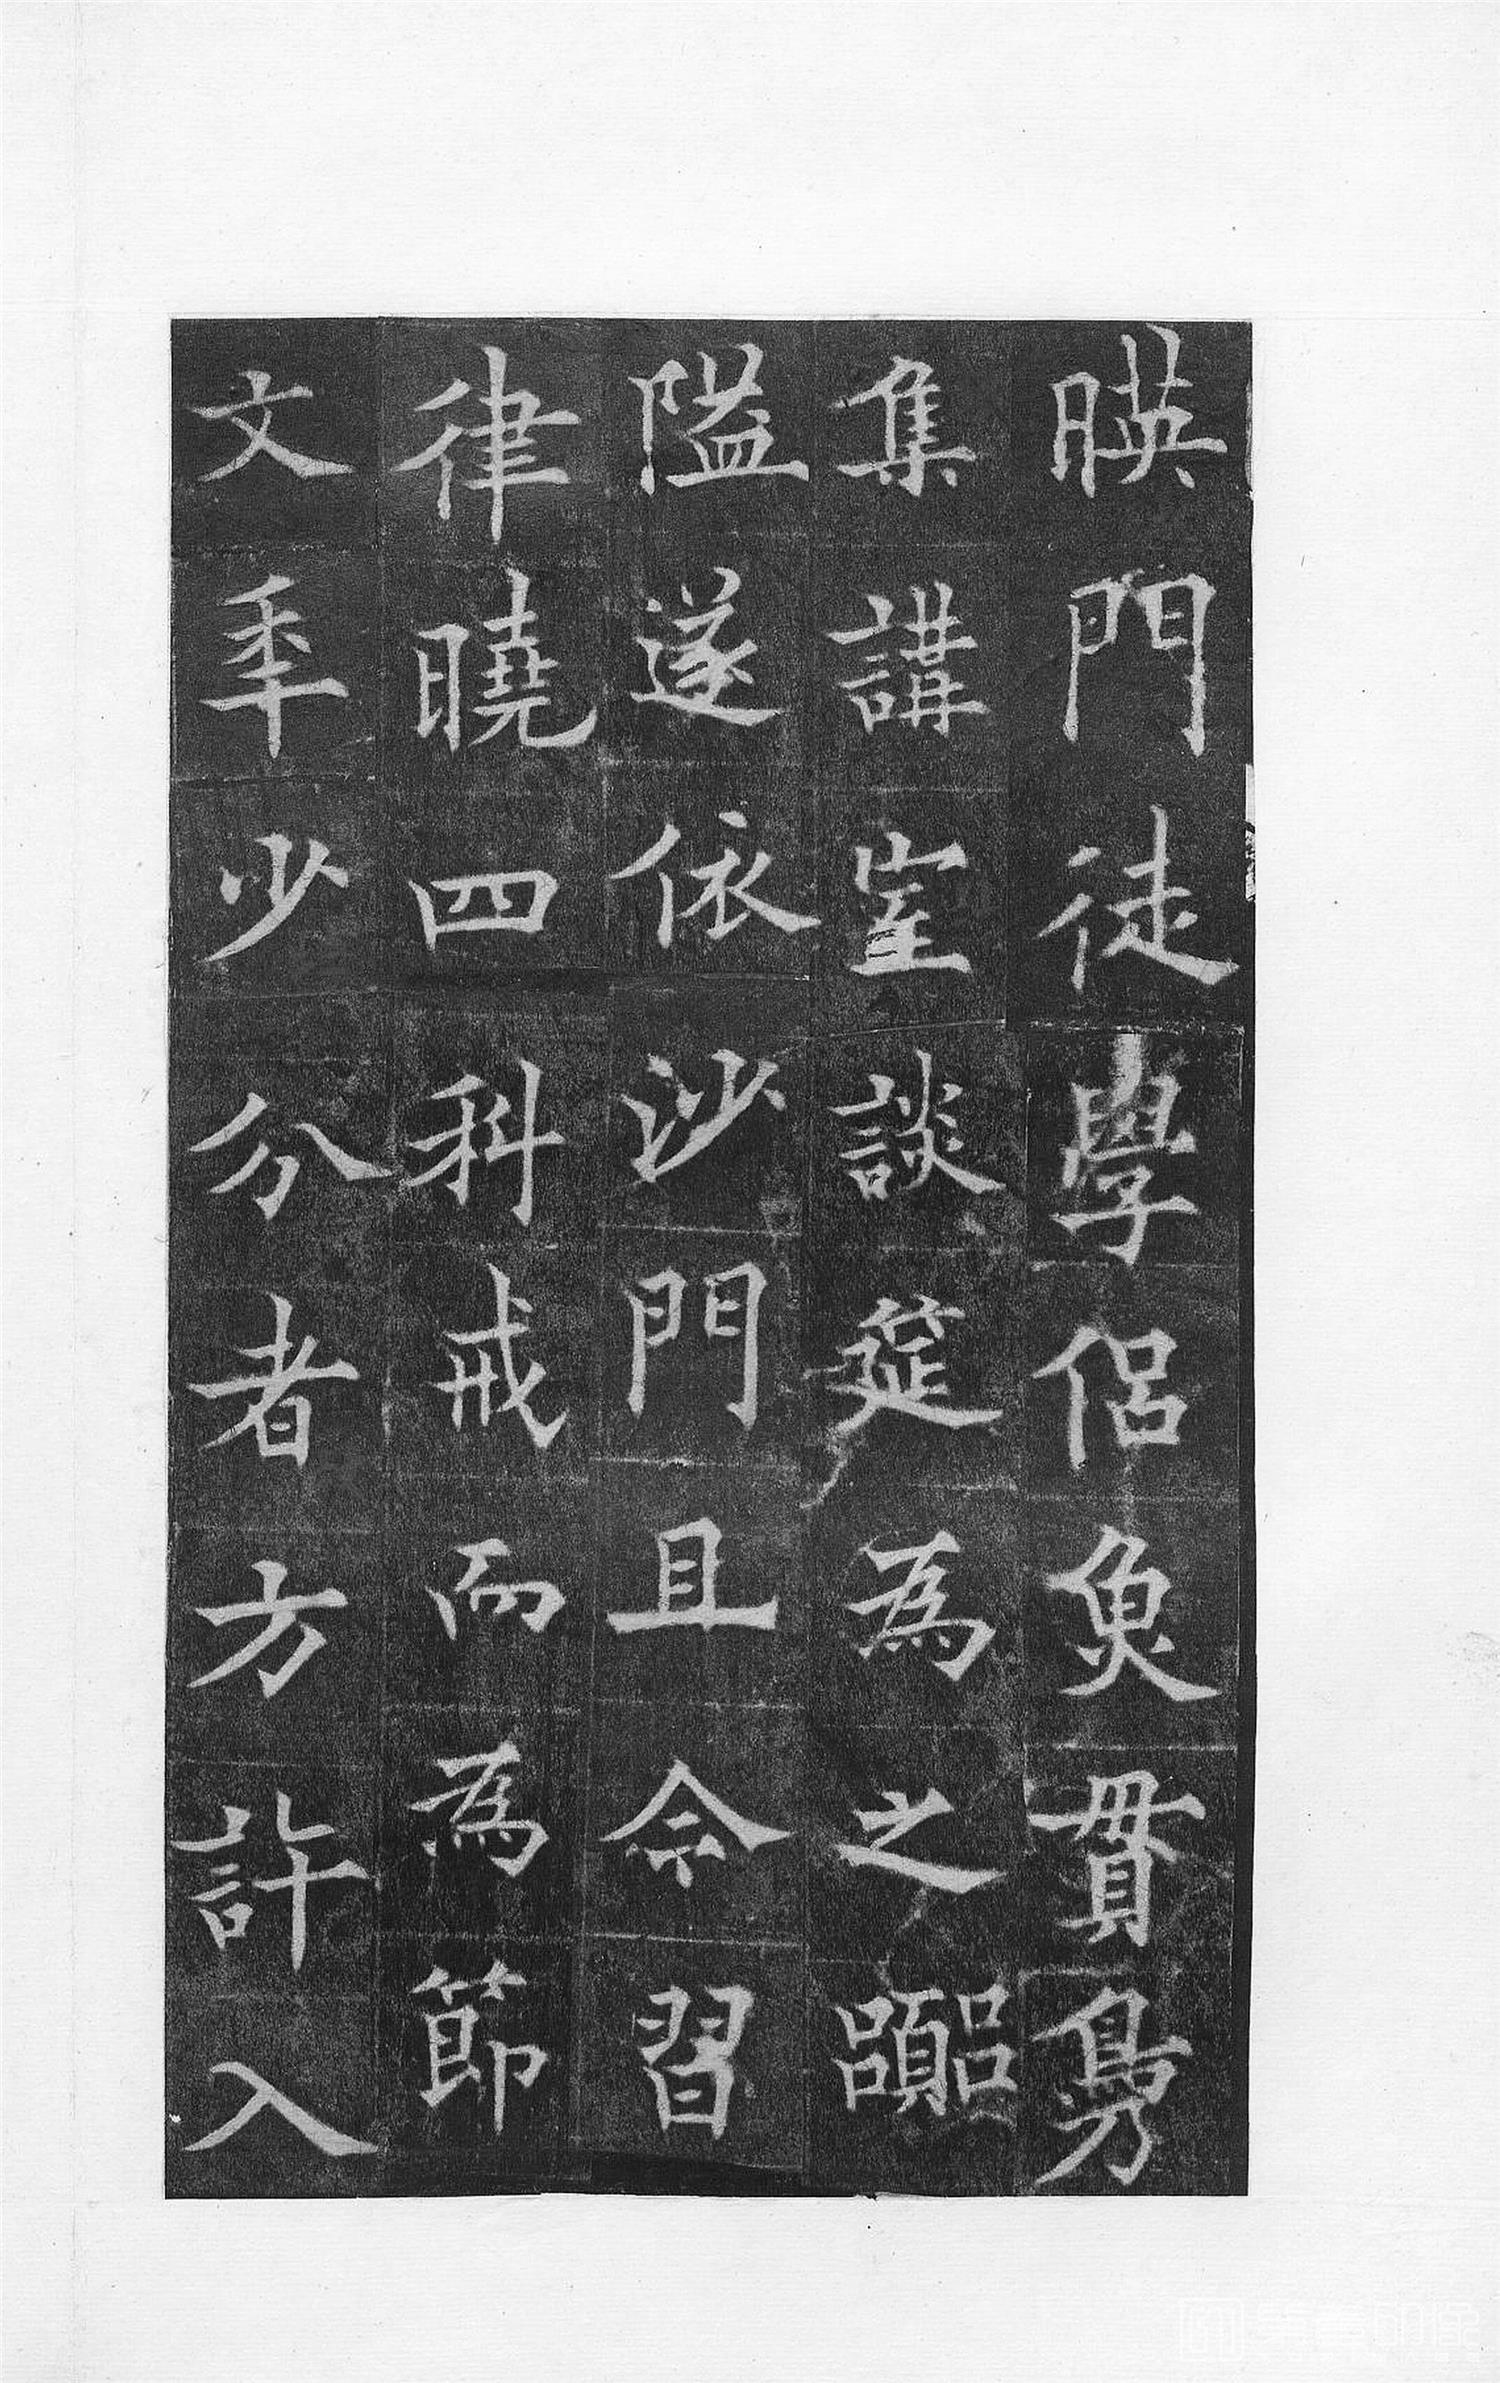 暎門徒學侶魚貫鳧
集講室談筵為之嚻
隘遂依沙門且令習
律曉四科戒而為節
文秊少分者方許入